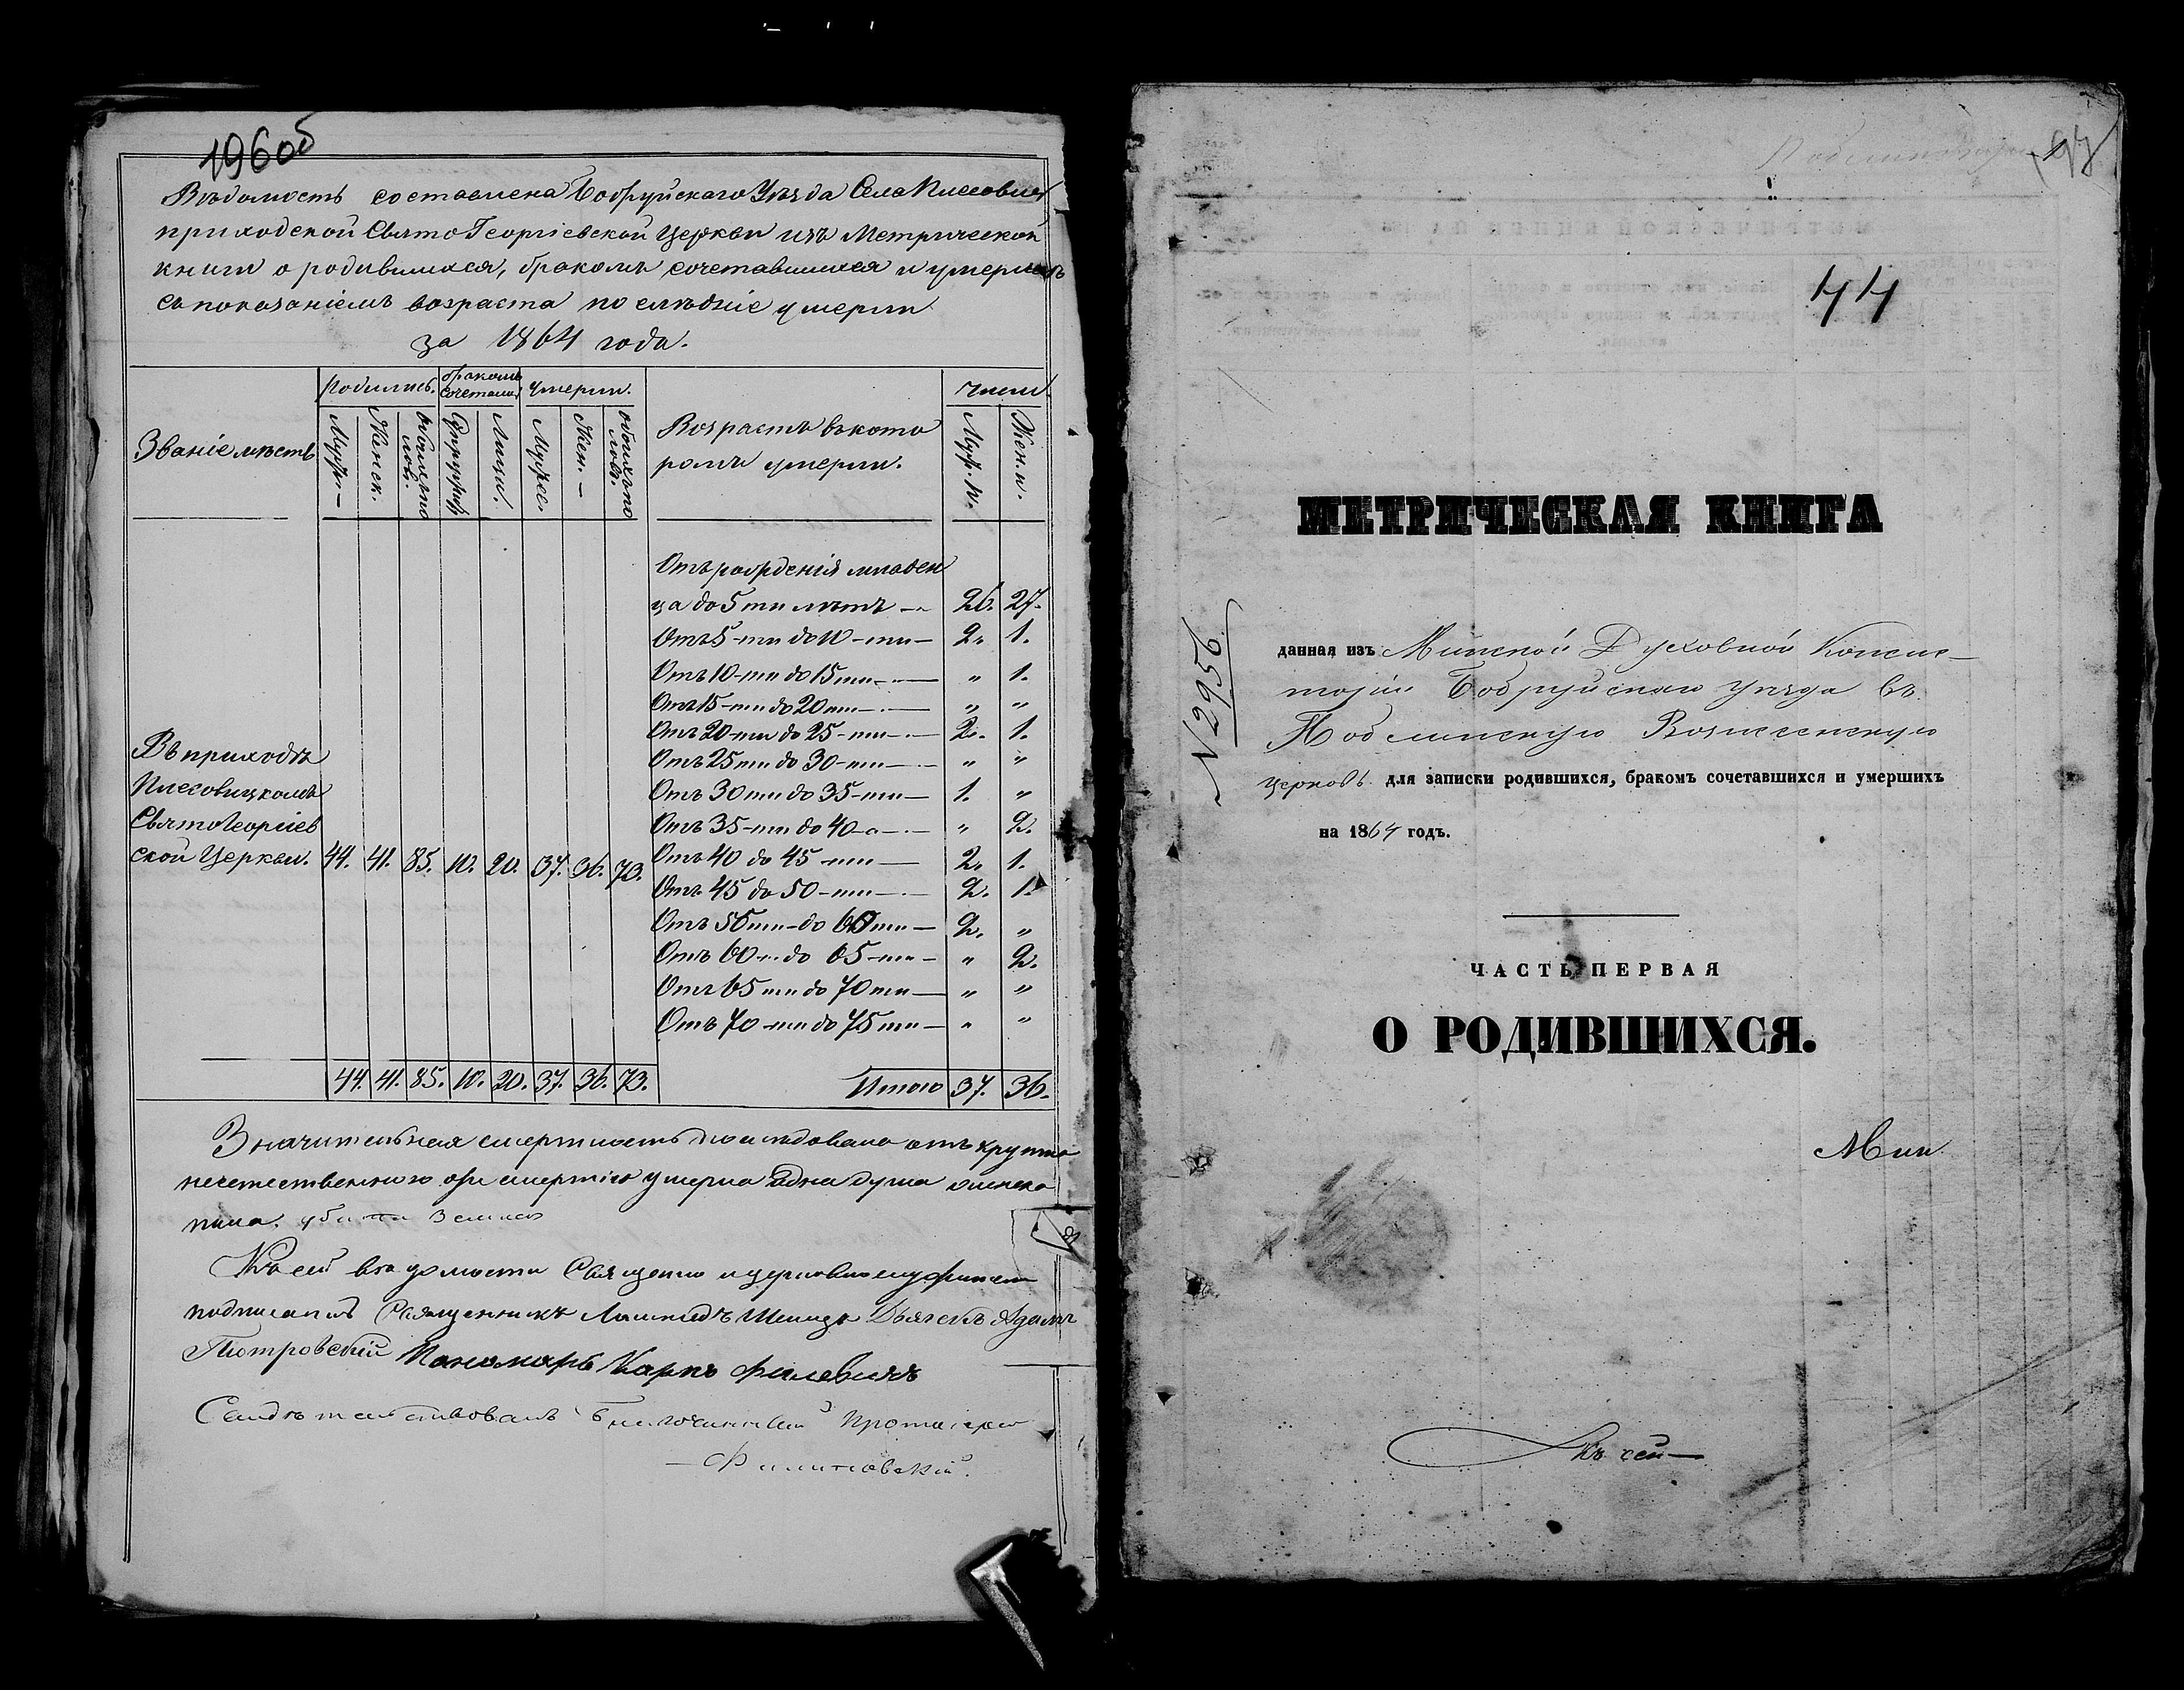 196об
Вѣдомость составлена Бобруйскаго Уѣзда Села
приходской Свято Георгіевской Церкви изъ Метрической
книги о родившихся, бракомъ сочетавшихся и умершихъ
съ показаніемъ возраста по
за 1864 года.
Званіе мѣстъ
Родилось.
Муж.
Женск.
обоихъ по
ловъ.
бракомъ
Лицъ.
умерли.
Жен.
обоихъ по
ловъ.
Возрастъ въ кото
ромъ умерли.
число
Муж. п.
Жен. п.
Отъ рожденія младен
ца до 5 ти лѣтъ 26. 27.
Отъ 5-ти до 10-ти 2. 1.
Отъ 10-ти до 15 ти „ 1.
Отъ 15-ти до 20 ти „ „
Отъ 20-ти до 25-ти 2. 1.
Отъ 25 ти до 30-ти „ „
Отъ 30 ти до 35-ти 1. „
Отъ 35-ти до 40 „ 2.
Отъ 40 до 45-ти 2. 1.
Отъ 45 до 50-ти 2. 1.
Отъ 50 ти до 60 ти 2. „
Отъ 60 до 65-ти „ 2.
Отъ 65 ти до 70 ти „ „
Отъ 70-ти до 75 ти „ „
Въ приходѣ
Свято Георгіев
ской Церкви. 44. 41. 85. 10. 20. 37. 36. 73.
44. 41. 85. 10. 20. 37. 36. 73.
Итого 37. 36.
Значительная смертность послѣдовала отъ
умерла одна душа
Къ сей вѣдомости Священно и церковнослужители
подписались Священникъ Дьячекъ Адамъ
Пономарь Карпъ Филевичъ
Свидѣтельствовалъ Благочинный Протоіерей
197
44
МЕТРИЧЕСКАЯ КНИГА
N 2956.
данная изъ Минской Духовной Консис-
торіи Бобруйскаго уѣзда въ
Вознесенскую
церковь для записки родившихся, бракомъ сочетавшихся и умершихъ
на 1864 годъ.
ЧАСТЬ ПЕРВАЯ
О РОДИВШИХСЯ.
Мин
Къ сей